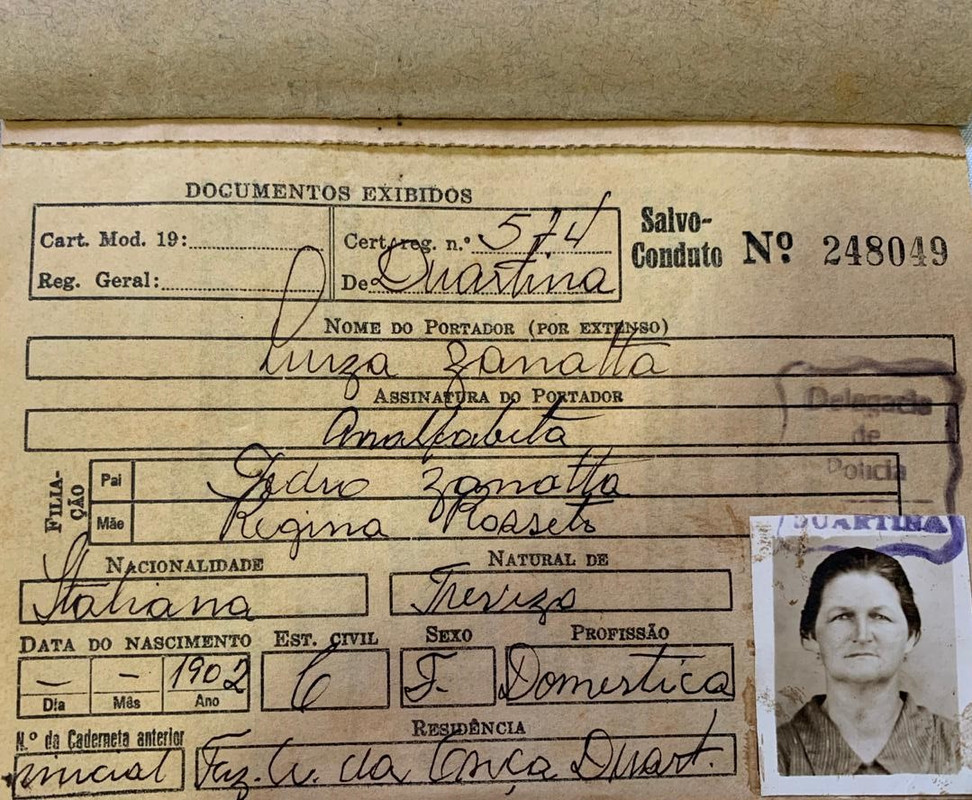 DOCUMENTOS EXIBIDOS
Cart. Mod. 19:
Cert. reg. n.º 574
Reg. Geral:
De Duartina
Salvo-
Conduto Nº 248049
NOME DO PORTADOR (POR EXTENSO)
Luiza Zanatta
ASSINATURA DO PORTADOR
Analfabeta
FILIA-
ÇÃO
Pai Pedro Zanatta
Mãe Regina Rosseto
Delegacia
de
Polícia
DUARTINA
NACIONALIDADE
Italiana
NATURAL DE
Trevizo
DATA DO NASCIMENTO
— — 1902
Dia Mês Ano
EST. CIVIL
C
SEXO
F.
PROFISSÃO
Domestica
N.º da Caderneta anterior
inicial
RESIDÊNCIA
Faz. da Onça Duart.